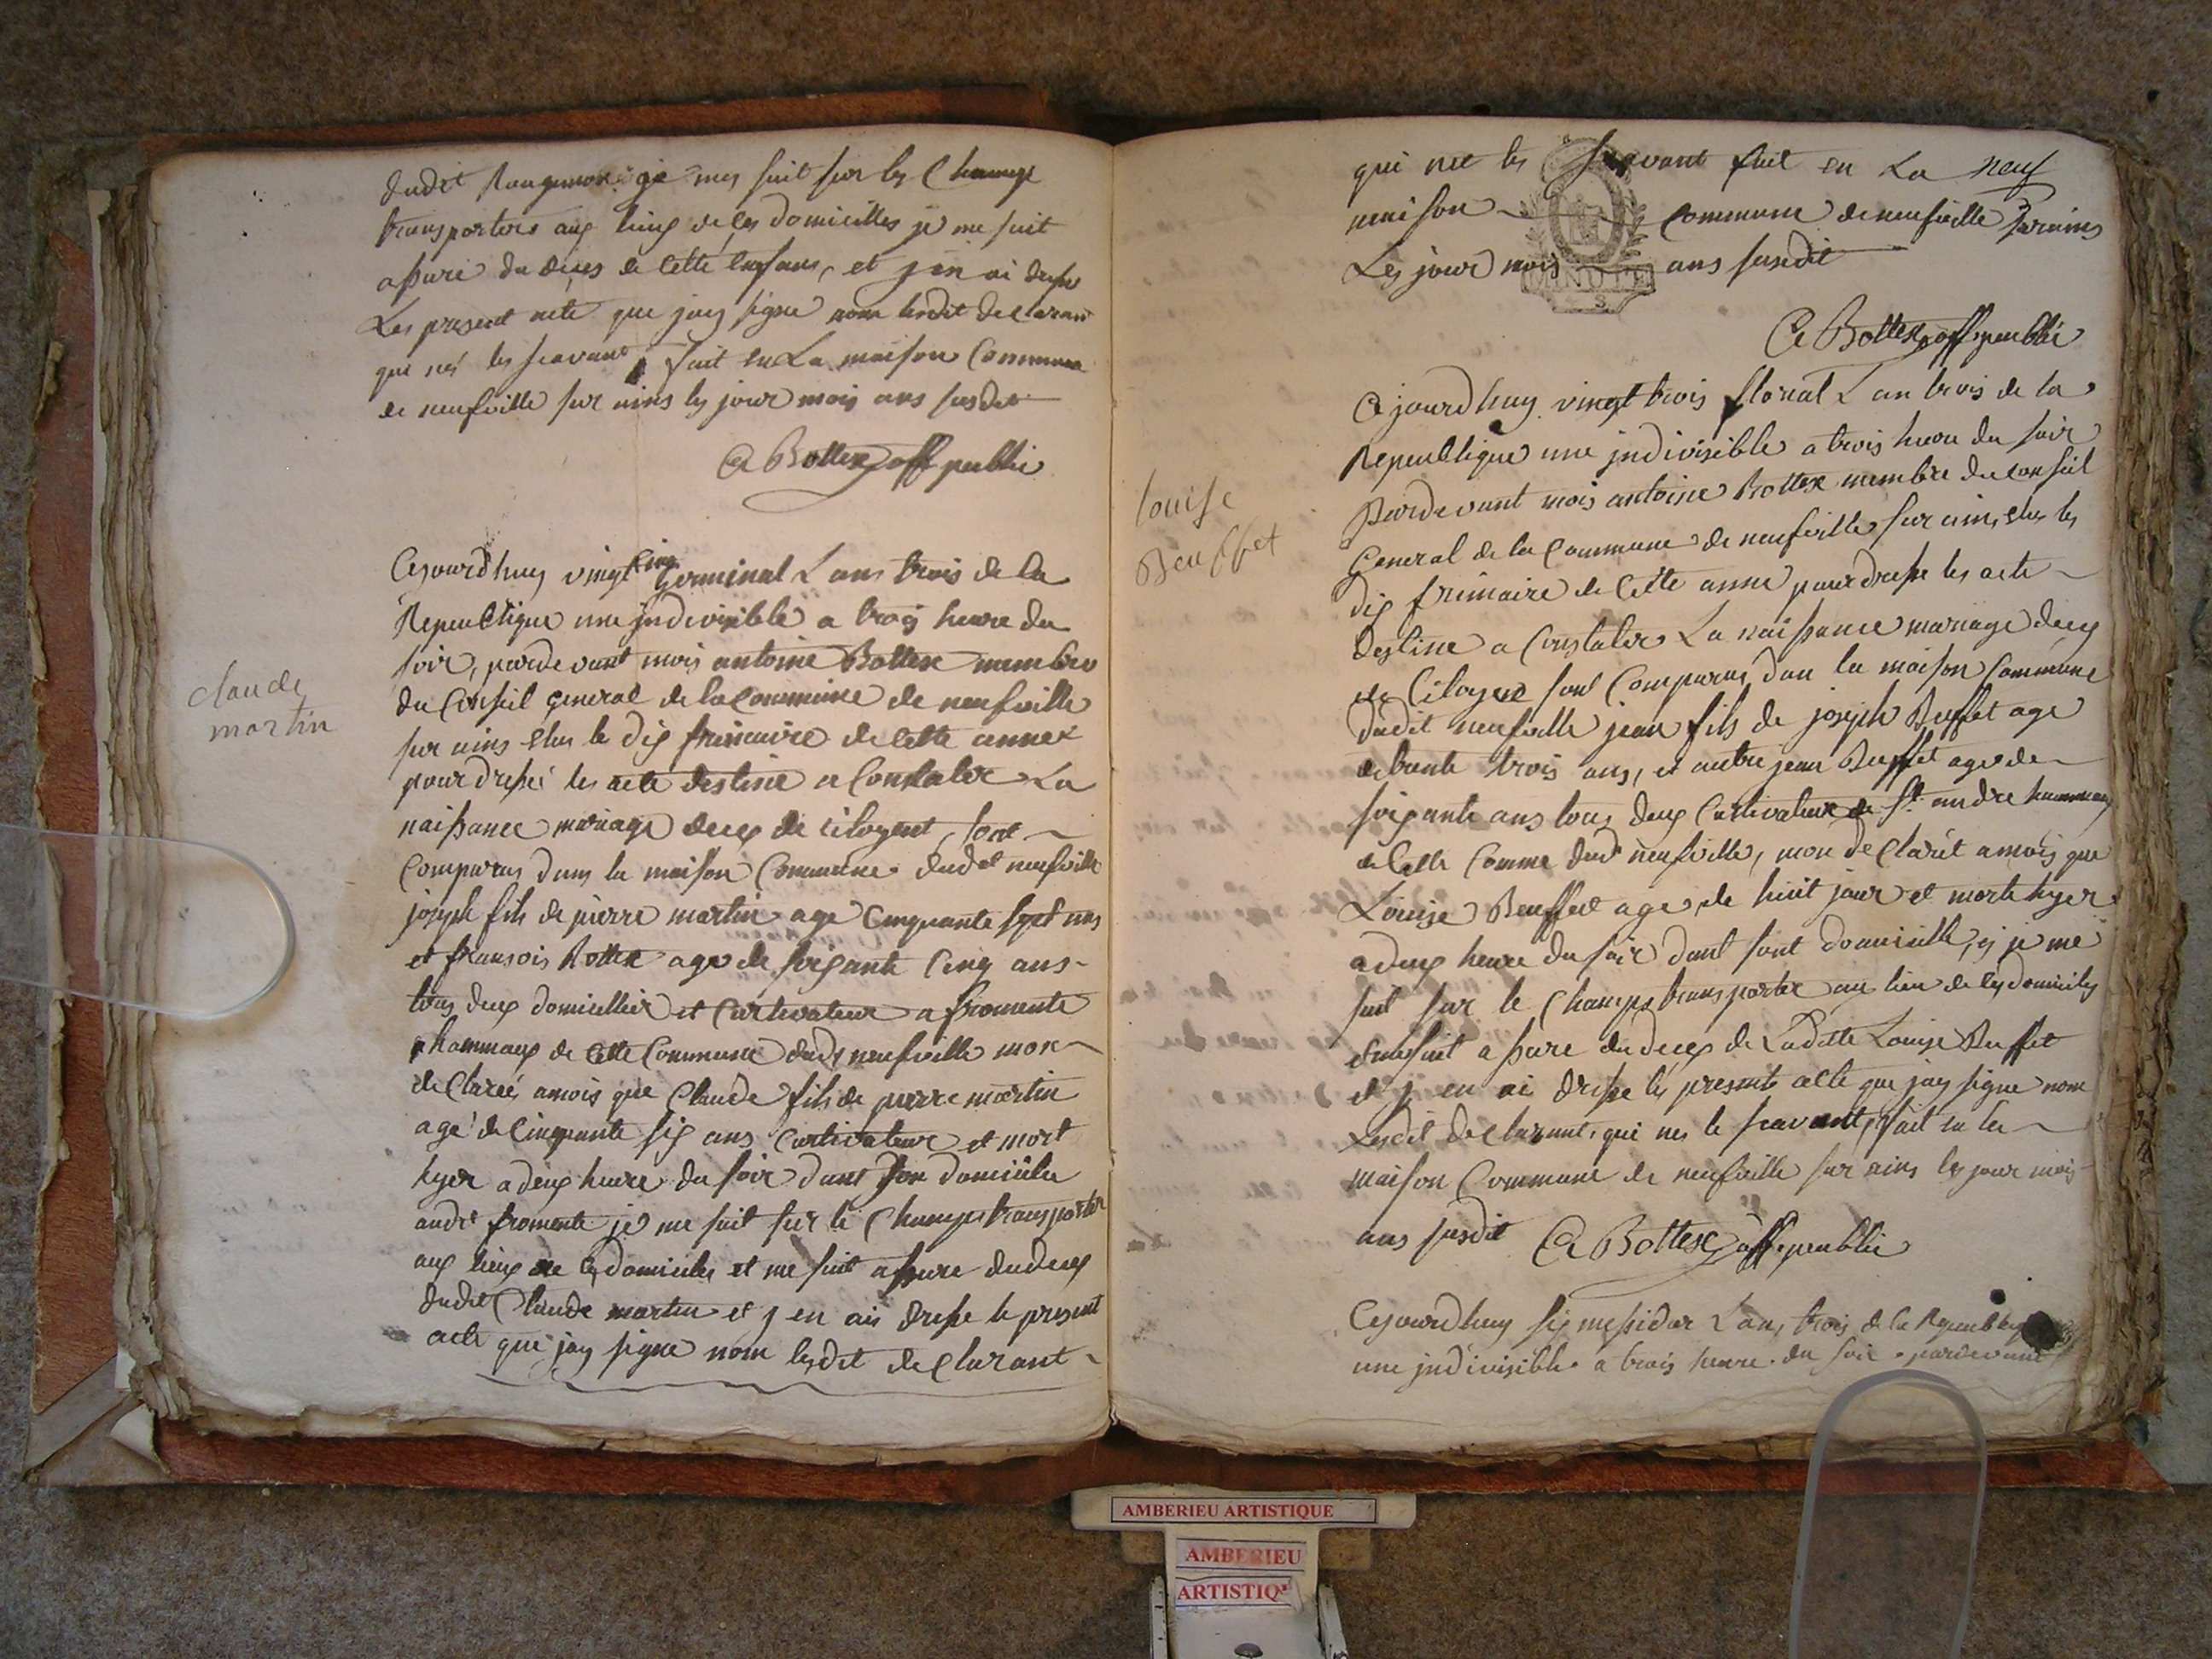 dudit Rougemon je mes suit sur les Champ
transporters aux lieux de ces domicilles je me suit
assuré du deces de cette enfans, et jen ai dresse
Les present acte que jay signe nom lesdit declarant
qui nés les scavant, fait en La maison Commune
de neufville sur ains les jour mois ans susdit
A Bottex off publie
Cejourdhuy vingt cinq germinal L ans trois de la
Republique une jndivisible a trois heure du
soir, pardevant mois antoine Bottex membre
du Conseil general de la Commune de neufville
sur ains elus le dix frimaire de cette annee
pour dressé les acte destine a Constater La
naissance mariage deces de citoyent, sont
comparus dans la maison Commune dudt neufville
joseph fils de pierre martin age cinquante sept ans
et fransois Bottex age de soixante Cinq ans
tous deux domicillier et Cultivateur a fromente
hammaux de cette Commune dudt neufville mon
declareé a mois que Claude fils de pierre martin
agé de cinquante six ans Cultivateur et mort
hyer a deux heure du soir dans son domicille
audt fromente je me suit sur le Champs transporter
aux lieux de ces domicilles et me suit assure du deces
dudit Claude martin et j en ai dresse le present
acte que jay signe nom lesdit declarant
claude
martin
qui net les scavant fait en La neuf
maison commune de neufville surains
Les jour mois ans susdit
A Bottex off publie
louise
Beuffet
Cejourdhuy vingt trois floreal L an trois de la
Republique une jndivisible a trois heure du soir
Pardevant mois antoine Bottex membre du Conseil
General de la Commune de neufville sur ains elus les
dix frimaire de cette anne pour dresse les acte
destine a Constater La naissance mariage deces
de Citoyent sont Comparus dan la maison Commune
dudit neufville jean fils de joseph Buffet age
de trente trois ans, et autre jean Buffet age de
soixante ans tous deux Cultivateur de St andre hammaux
de cette Comme dudt neufville, mon declarét a mois que
Louise Beuffet age de huit jour et morte hyer
a deux heure du soir dant sont domicille, ej je me
suit sur le Champs transporter aux lieu de ces domicilles
et me suit assure du deces de Laditte Louise Buffet
et j en ai dresse les present acte que jay signe nom
Lesdit declarant, qui nes le scavant, fait en la
maison Commune de neufville sur ains les jour mois
ans susdit A Bottex off publie
Cejourdhuy six messidor L ans trois de la Republique
une jndivisible a trois heure du soir pardevant
AMBERIEU ARTISTIQUE
AMBERIEU
ARTISTIQ